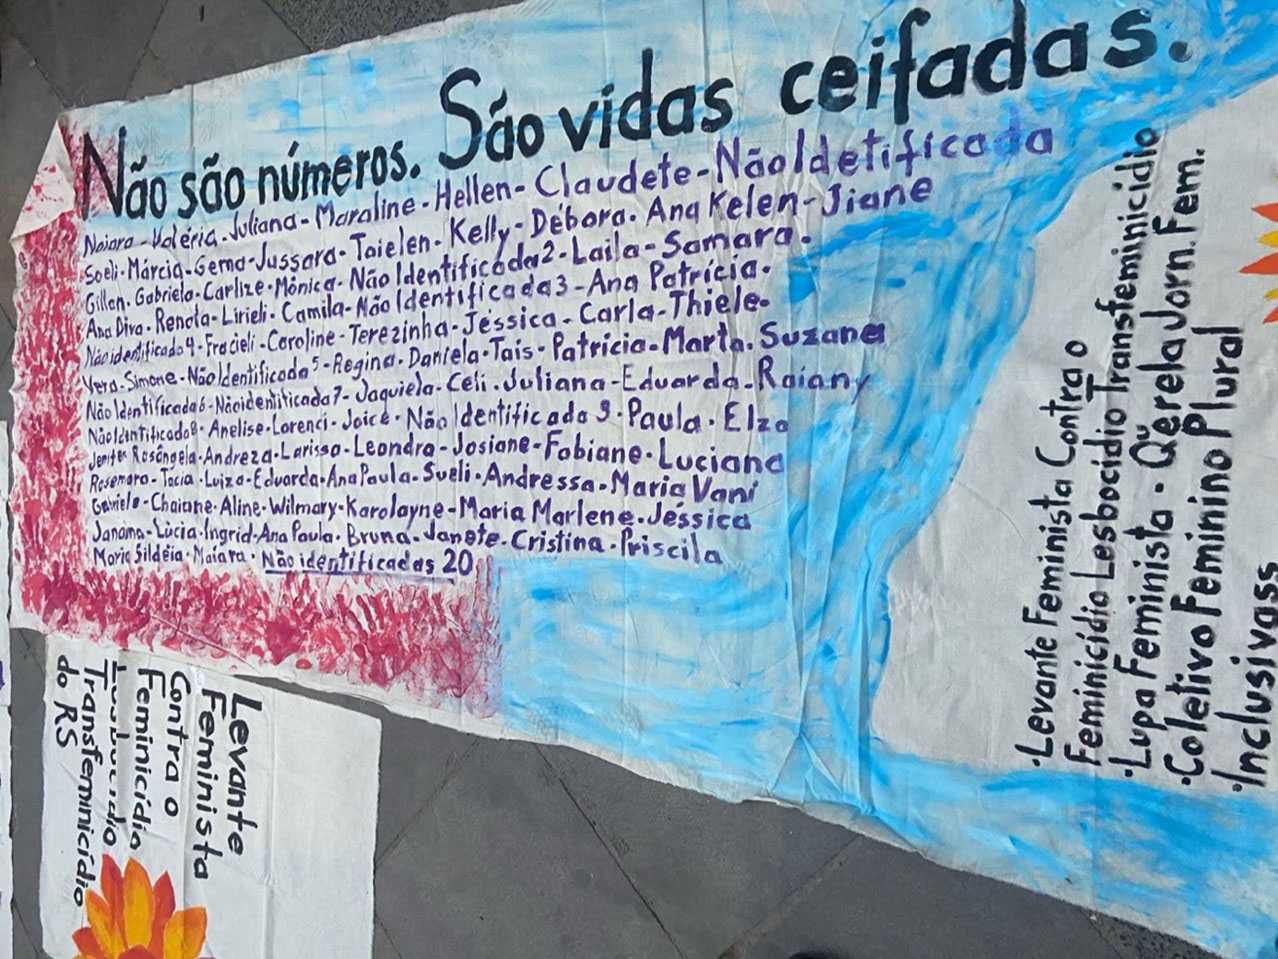 Não são números. São vidas ceifadas.
Naiara - Valéria - Juliana - Maraline - Hellen - Claudete - Não Idetificada
Soeli - Márcia - Gema - Jussara - Taielen - Kelly - Débora - Ana Kelen - Jiane
Gillan - Gabriela - Carlize - Mônica - Não Identificada 2 - Laila - Samara.
Ana Diva - Renata - Lirieli - Camila - Não Identificada 3 - Ana Patrícia.
Não identificada 4 - Fracieli - Caroline - Terezinha - Jéssica - Carla - Thiele.
Vera - Simone - Não Identificada 5 - Regina - Daniela - Tais - Patricia - Marta - Suzane
Não Identificada 6 - Não identificada 7 - Jaquiela - Celi - Juliana - Eduarda - Raiany
Não Identificada 8 - Anelise - Lorenci - Joice - Não Identificada 9 - Paula - Elza
Jenifer Rosângela - Andreza - Larissa - Leondra - Josiane - Fabiane - Luciana
Rosemara - Tacia - Luiza - Eduarda - Ana Paula - Sueli - Andressa - Maria Vani
Gabriela - Chaiane - Aline - Wilmary - Karolayne - Maria Marlene - Jéssica
Janaina - Lúcia - Ingrid - Ana Paula - Bruna - Janete - Cristina - Priscila
Maria Sildéia - Maiara - Não identificadas 20
·Levante Feminista Contra o
Feminicídio Lesbocídio Transfeminicídio
·Lupa Feminista - Qĕrela Jorn. Fem.
·Coletivo Feminino Plural
·Inclusivass
Levante
Feminista
Contra o
Feminicídio
Lesbocídio
Transfeminicídio
do RS